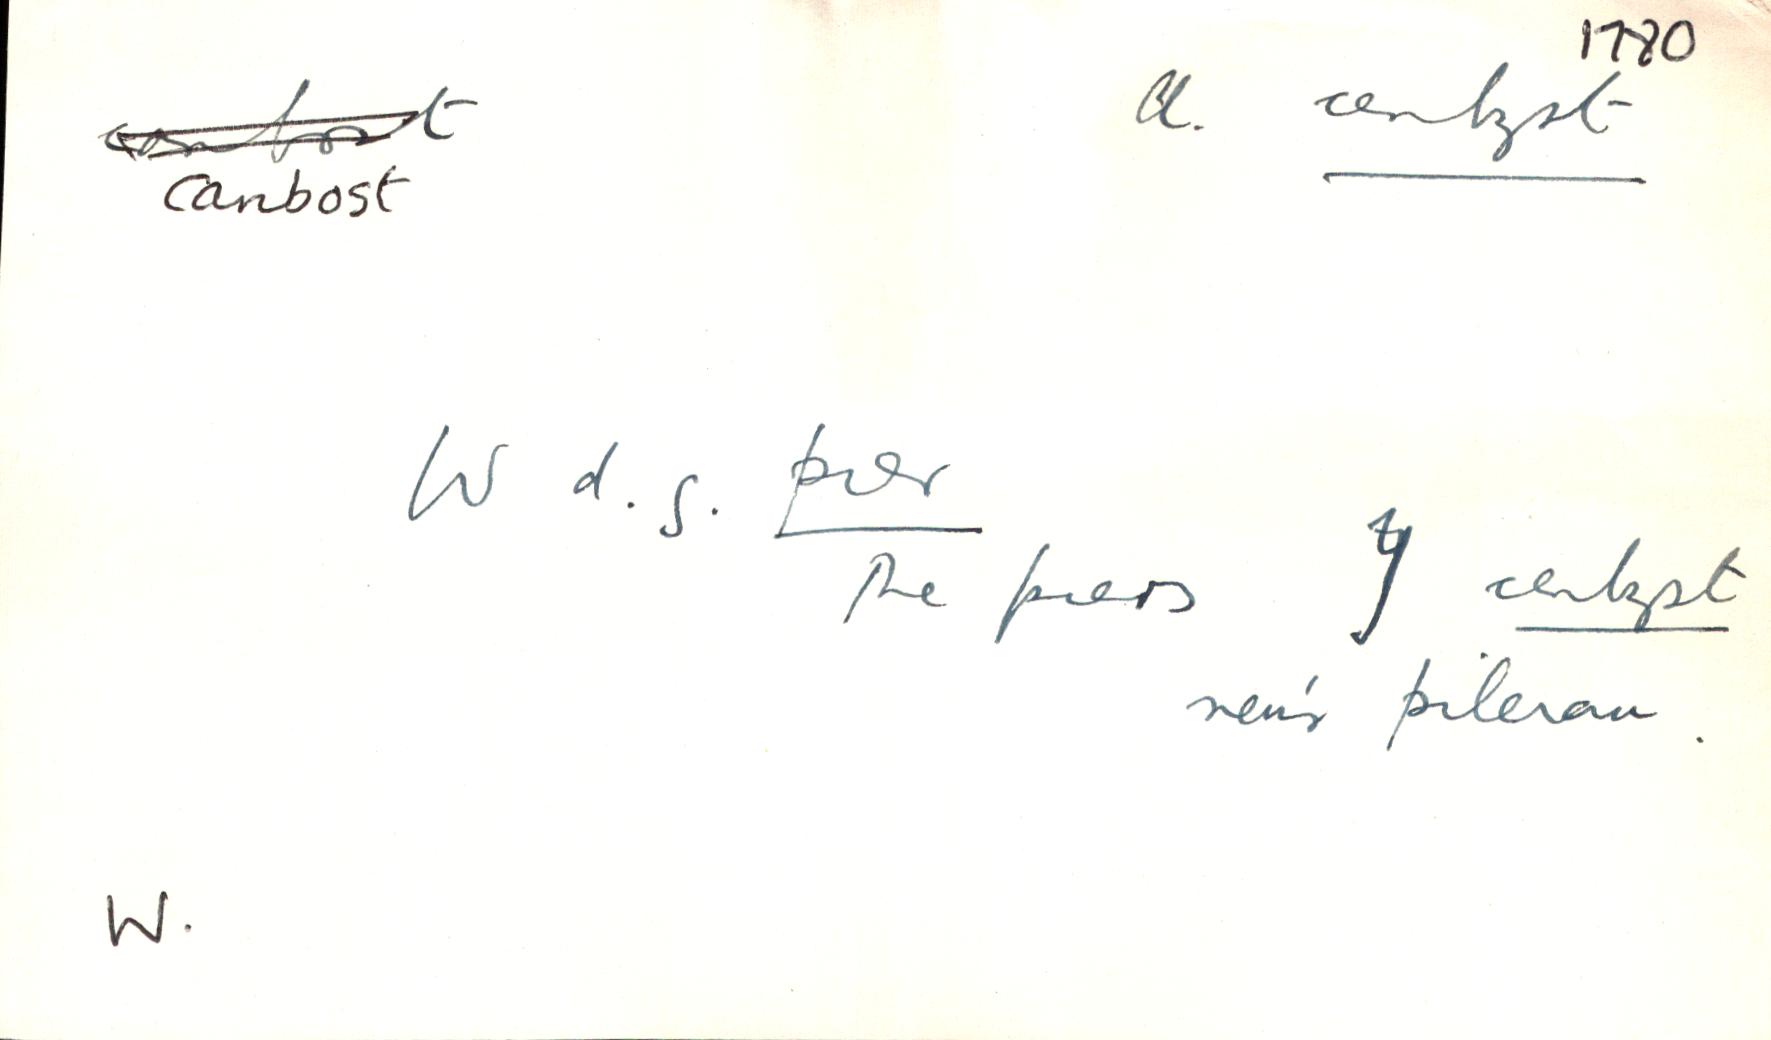 1780
canbost cenbyst
canbost
W d.g. pier
The piers y cenbyst
neu'r pilerau.
W.